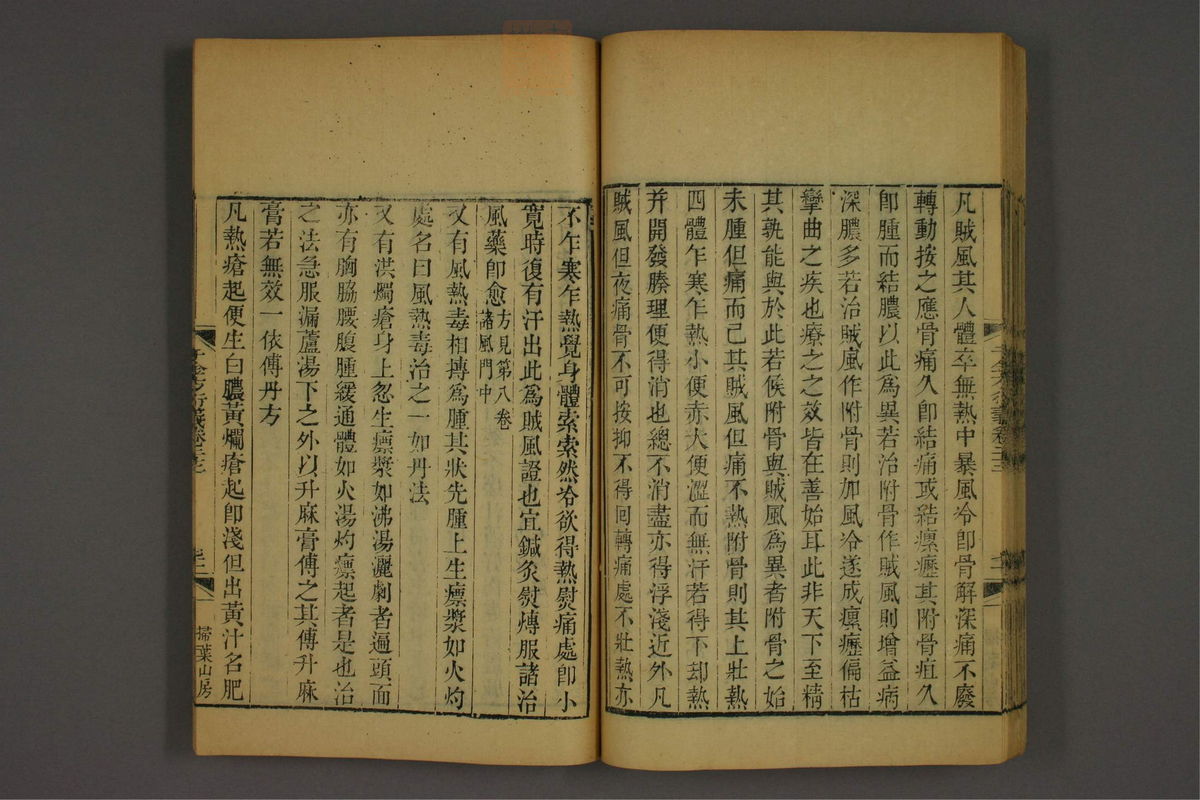 凡賊風其人體卒無熱中暴風冷即骨解深痛不廢
轉動按之應骨痛久即結痛或結瘰癧其附骨疽久
即腫而結膿以此為異若治附骨作賊風則增益病
深膿多若治賊風作附骨則加風冷遂成瘰癧偏枯
攣曲之疾也療之之效皆在善始耳此非天下至精
其孰能與於此若候附骨與賊風為異者附骨之始
未腫但痛而已其賊風但痛不熱附骨則其上壯熱
四體乍寒乍熱小便赤大便澀而無汗若得下却熱
并開發腠理便得消也總不消盡亦得浮淺近外凡
賊風但夜痛骨不可按抑不得回轉痛處不壯熱亦
不乍寒乍熱覺身體索索然冷欲得熱熨痛處即小
寬時復有汗出此為賊風證也宜鍼灸熨煿服諸治
風藥即愈方見第八卷諸風門中
又有風熱毒相摶為腫其狀先腫上生瘭漿如火灼
處名曰風熱毒治之一如丹法
又有洪燭瘡身上忽生瘭漿如沸湯灑劇者遍頭面
亦有胸脇腰腹腫緩通體如火湯灼瘭起者是也治
之法急服漏蘆湯下之外以升麻膏傅之其傅升麻
膏若無效一依傅丹方
凡熱瘡起便生白膿黃爛瘡起即淺但出黃汁名肥
掃葉山房